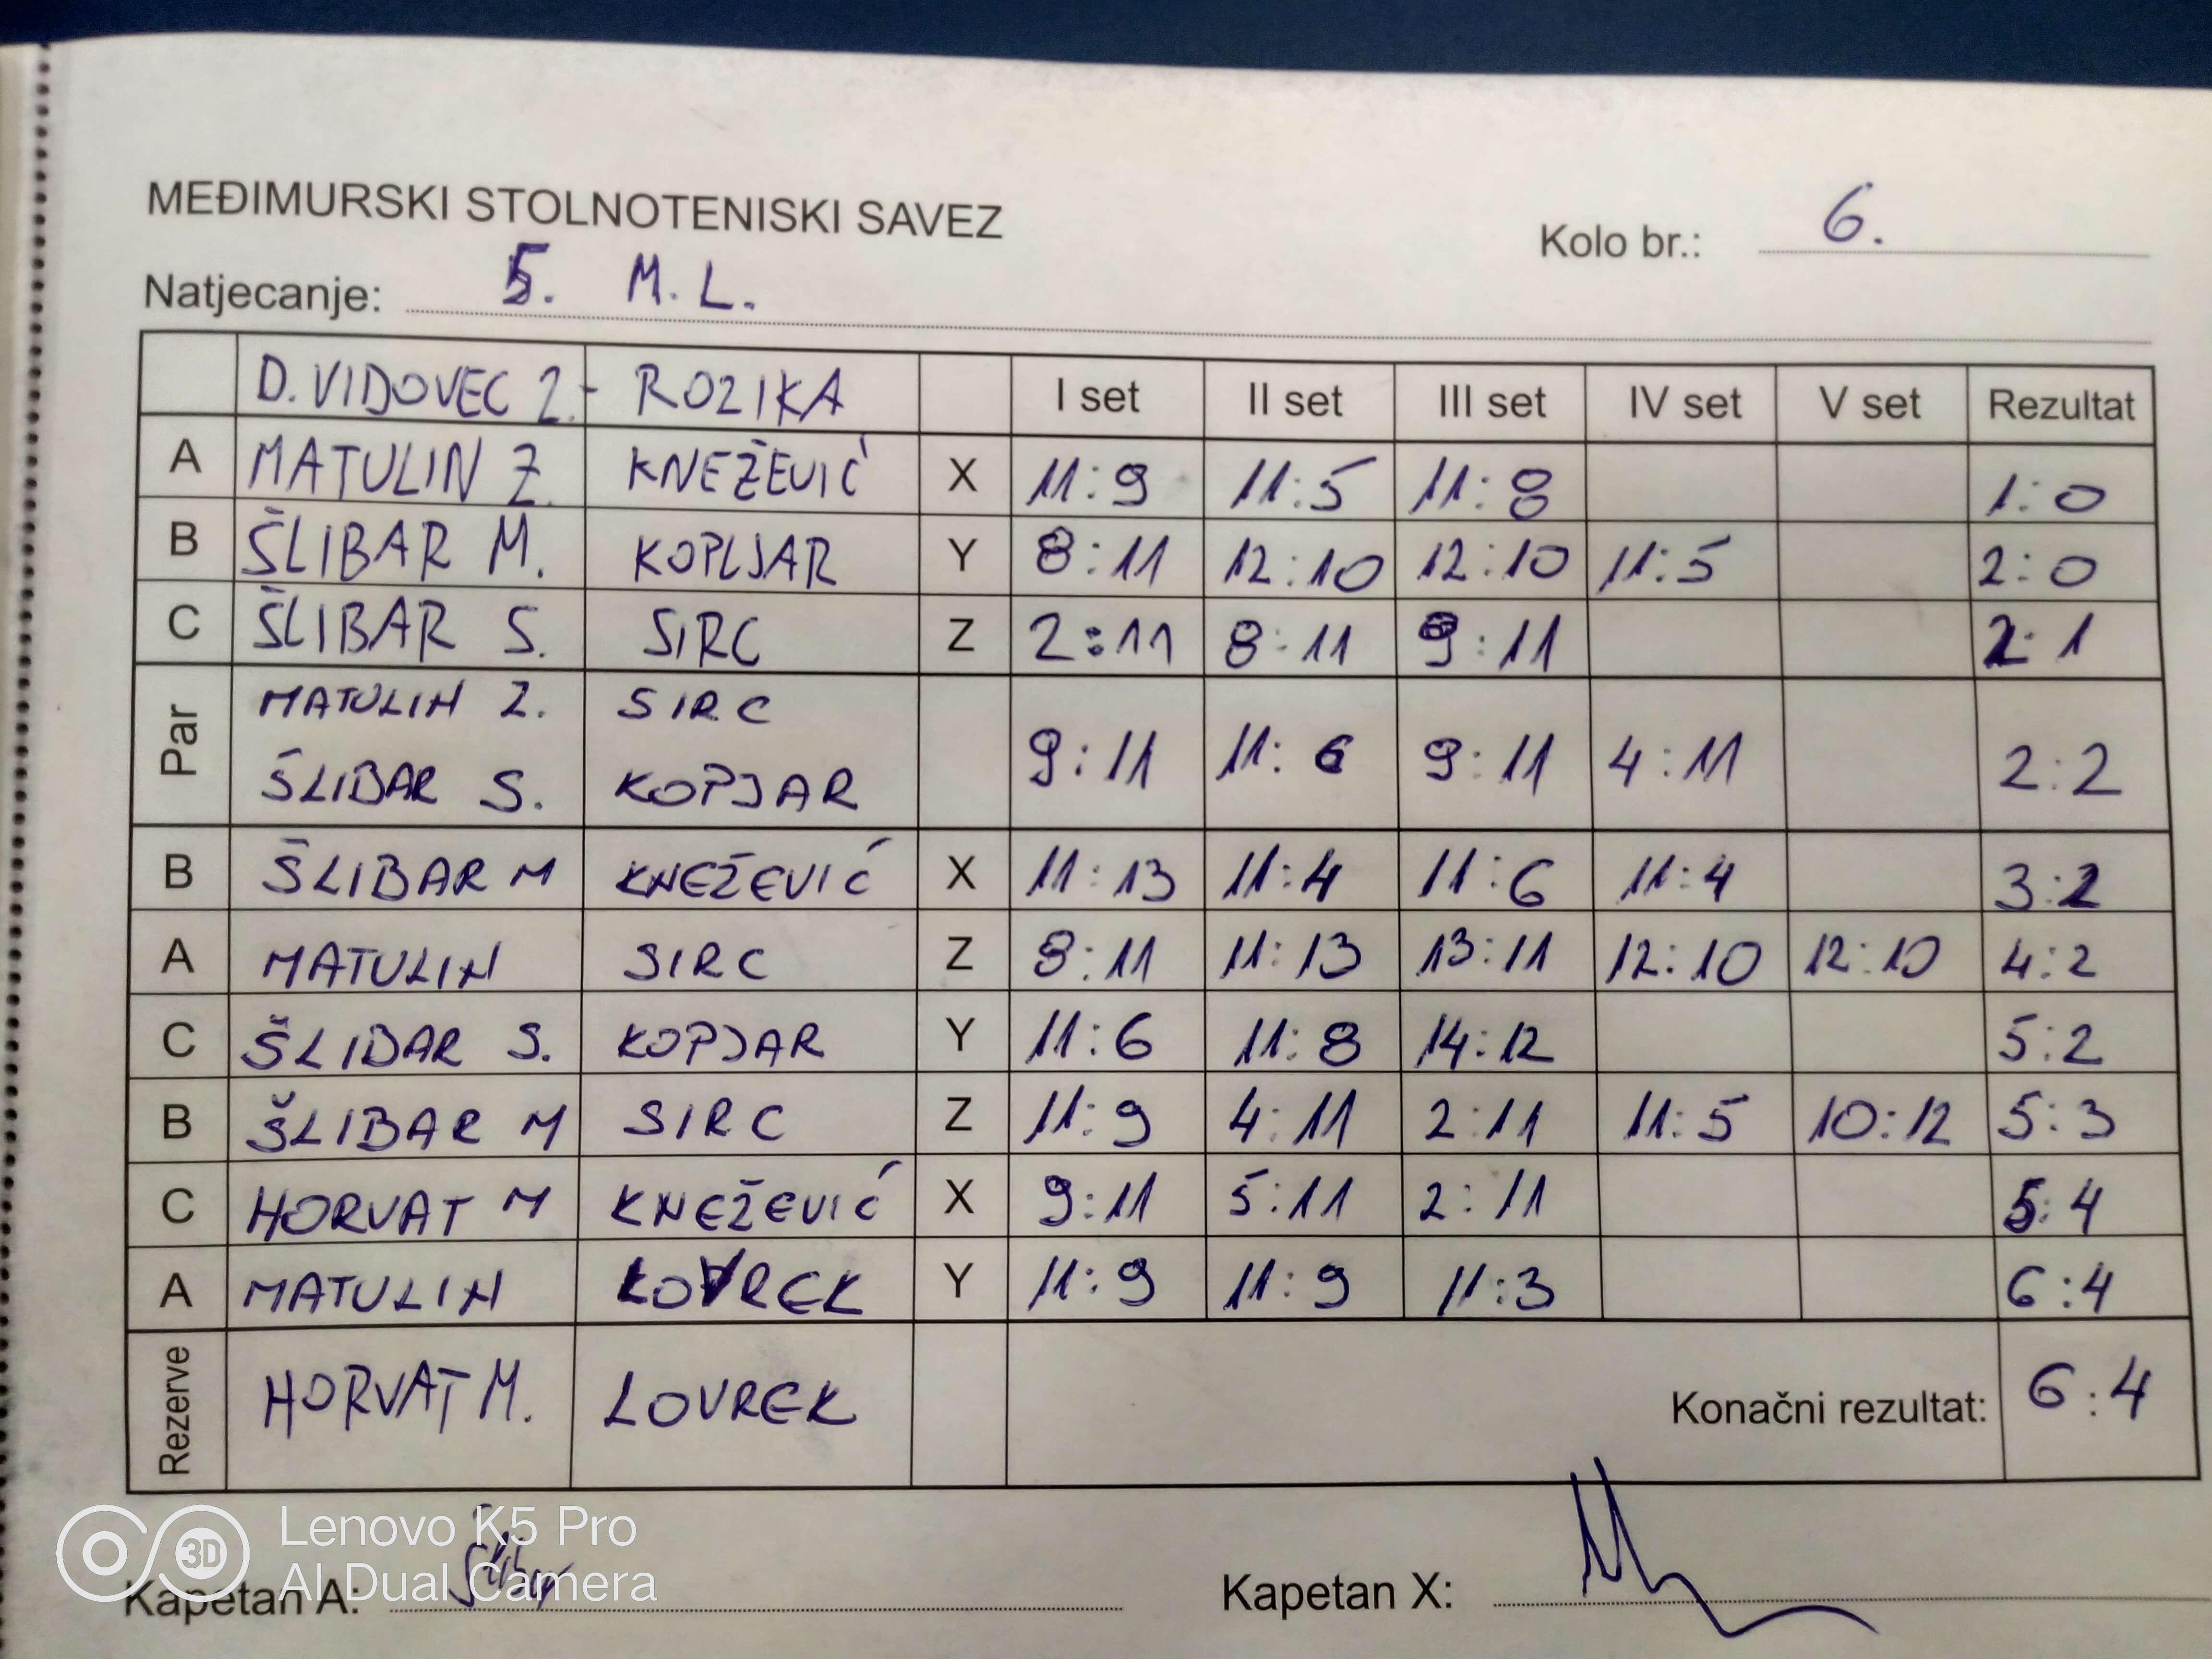 MEĐIMURSKI STOLNOTENISKI SAVEZ
Kolo br.: 6.
Natjecanje: 5. M. L.
D. VIDOVEC 2. - ROZIKA I set II set III set IV set V set Rezultat
A MATULIN Z. KNEŽEVIĆ X 11:9 11:5 11:8 1:0
B ŠLIBAR M. KOPLJAR Y 8:11 12:10 12:10 11:5 2:0
C ŠLIBAR S. SIRC Z 2:11 8:11 9:11 2:1
Par MATULIN Z. SIRC
ŠLIBAR S. KOPJAR 9:11 11:6 9:11 4:11 2:2
B ŠLIBAR M KNEŽEVIĆ X 11:13 11:4 11:6 11:4 3:2
A MATULIN SIRC Z 8:11 11:13 13:11 12:10 12:10 4:2
C ŠLIBAR S. KOPJAR Y 11:6 11:8 14:12 5:2
B ŠLIBAR M SIRC Z 11:9 4:11 2:11 11:5 10:12 5:3
C HORVAT M KNEŽEVIĆ X 9:11 5:11 2:11 5:4
A MATULIN Y 11:9 11:9 11:3 6:4
Rezerve HORVAT M. LOVREK Konačni rezultat: 6:4
Lenovo K5 Pro
AI Dual Camera
Kapetan A: Kapetan X: